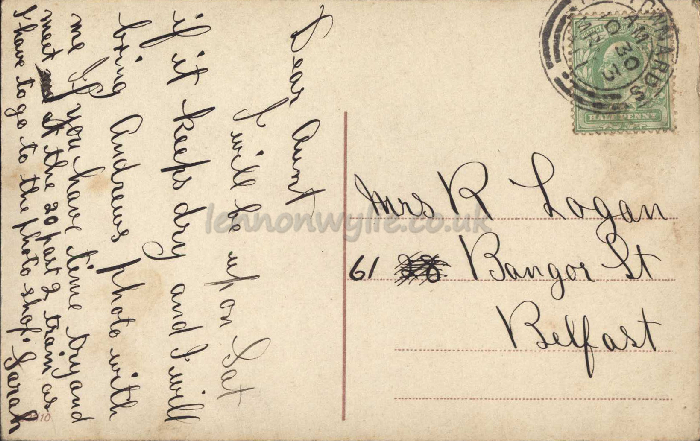 Dear Aunt
I will be up on Sat
if it keeps dry and I will
bring Andrews photo with
me If you have time try and
meet at the 20 past 2 train as
I have to go to the photo shop. Sarah
Mrs R Logan
61 28 Bangor St
Belfast
HALFPENNY
lennonwylie.co.uk